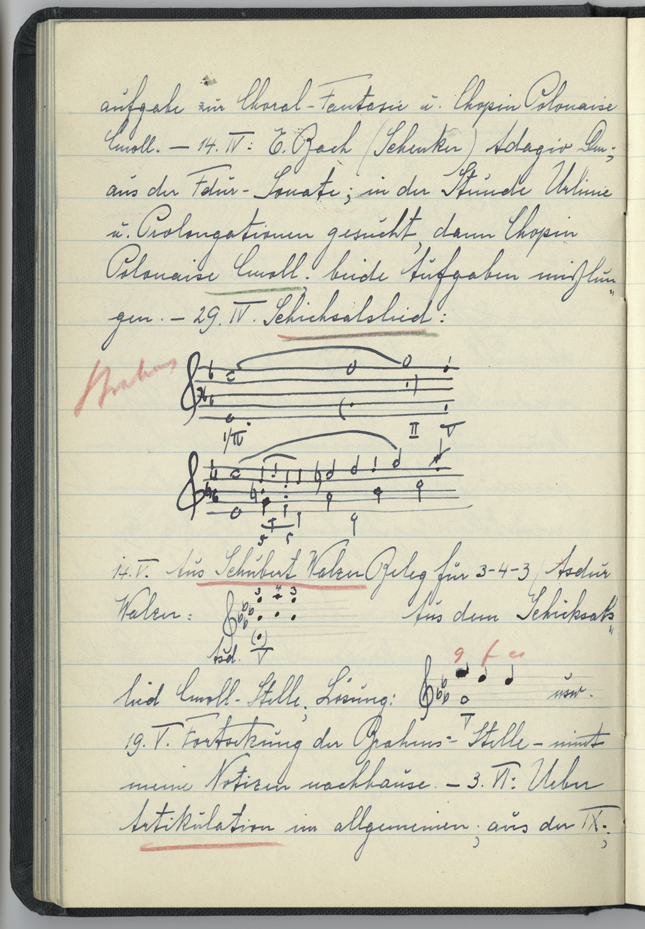 aufgabe zur Choral-Fantasie u. Chopin Polonaise
Cmoll. – 14. IV: E. Bach (Schenker) Adagio Dm-,
aus der Fdur-Sonate; in der Stunde Urlinie
u. Prolongationen gesucht, dann Chopin
Polonaise Cmoll. beide Aufgaben mißlun„
gen. – 29. IV. Schicksalslied:
Brahms
II V
14. V. Aus Schubert Walzer Beleg für 3-4-3 / Asdur
3 4 3
Walzer: Aus dem Schicksals„
Asd. V
g f es
lied Cmoll-Stelle, Lösung: usw.
T
19. V. Fortsetzung der Brahms-Stelle – nimmt
meine Notizen nachhause. – 3. VI: Ueber
Artikulation im allgemeinen; aus der IX.,